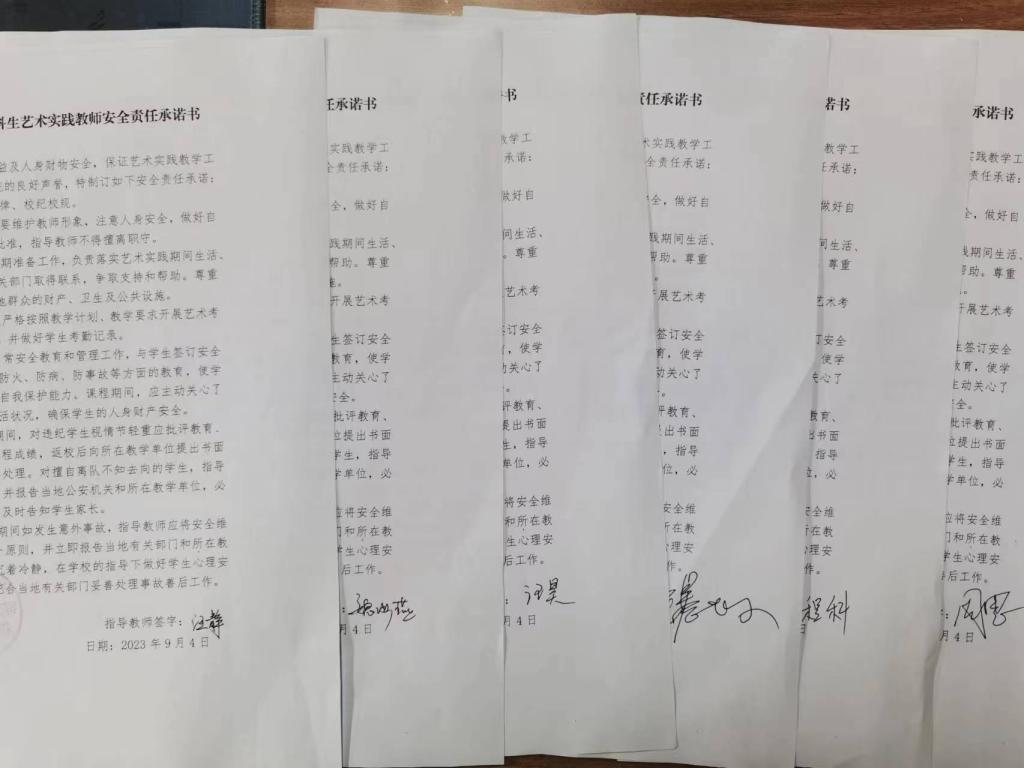 科生艺术实践教师安全责任承诺书
益及人身财物安全，保证艺术实践教学工
的良好声誉，特制订如下安全责任承诺：
律、校纪校规。
要维护教师形象，注意人身安全，做好自
批准，指导教师不得擅离职守。
期准备工作，负责落实艺术实践期间生活、
关部门取得联系，争取支持和帮助。尊重
地群众的财产、卫生及公共设施。
严格按照教学计划、教学要求开展艺术考
，并做好学生考勤记录。
常安全教育和管理工作，与学生签订安全
防火、防病、防事故等方面的教育，使学
自我保护能力。课程期间，应主动关心了
活状况，确保学生的人身财产安全。
期间，对违纪学生视情节轻重应批评教育、
程成绩，返校后向所在教学单位提出书面
处理。对擅自离队不知去向的学生，指导
并报告当地公安机关和所在教学单位，必
及时告知学生家长。
期间如发生意外事故，指导教师应将安全维
原则，并立即报告当地有关部门和所在教
着冷静，在学校的指导下做好学生心理安
合当地有关部门妥善处理事故善后工作。
指导教师签字：汪静
日期：2023年9月4日
任承诺书
实践教学工
全责任承诺：
全，做好自
践期间生活、
帮助。尊重
开展艺术考
生签订安全
教育，使学
主动关心了
安全。
批评教育、
位提出书面
学生，指导
学单位，必
应将安全维
门和所在教
学生心理安
后工作。
月4日
诺书
教学工
承诺：
做好自
间生活、
。尊重
艺术考
签订安全
，使学
动关心了
评教育、
提出书面
生，指导
单位，必
将安全维
和所在教
生心理安
后工作。
：汪昊
月4日
责任承诺书
实践教学工
全责任承诺：
，做好自
践期间生活、
帮助。尊重
开展艺术考
生签订安全
教育，使学
主动关心了
安全。
批评教育、
位提出书面
生，指导
单位，必
安全维
所在教
心理安
作。
诺书
教学工
承诺：
做好自
间生活、
。尊重
艺术考
订安全
，使学
心了
教育、
出书面
，指导
位，必
安全维
所在教
心理安
工作。
程科
承诺书
实践教学工
责任承诺：
全，做好自
践期间生活、
帮助。尊重
开展艺术考
生签订安全
教育，使学
主动关心了
安全。
批评教育、
位提出书面
学生，指导
学单位，必
应将安全维
门和所在教
学生心理安
后工作。
月4日